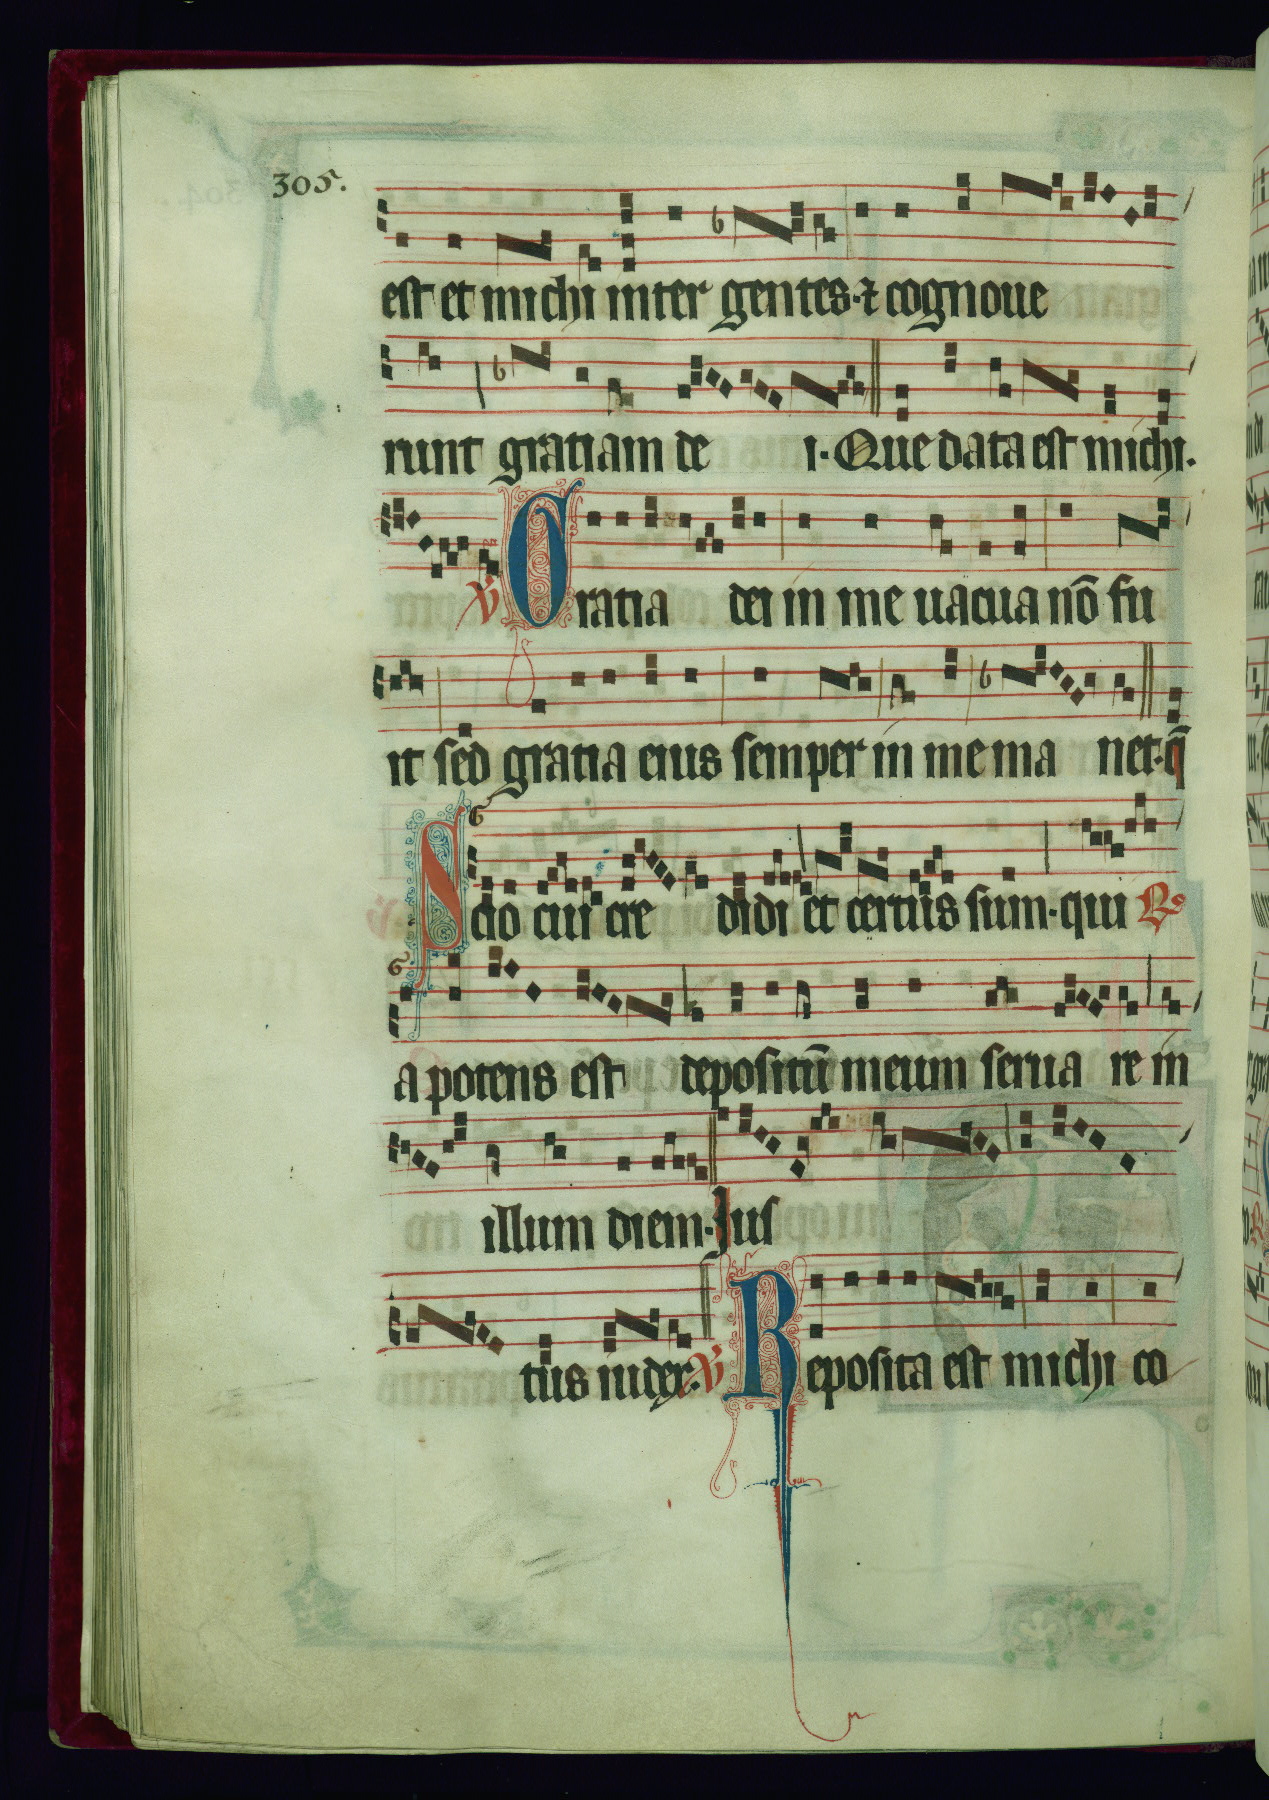 305.
est et michi inter gentes·⁊ cognoue
runt gratiam de i· Que data est michi·
℣ Gratia dei in me uacua nō fu
it sed gratia eius semper in me ma net·q̄
Scio cui cre didi et certus sum·qui ℟
a potens est depositū meum serua re in
illum diem·Jus
tus iudex·℣ Reposita est michi co